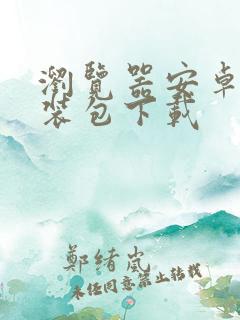 瀏覽器安卓
裝包下載
鄭緒嵐
未经同意禁止转载